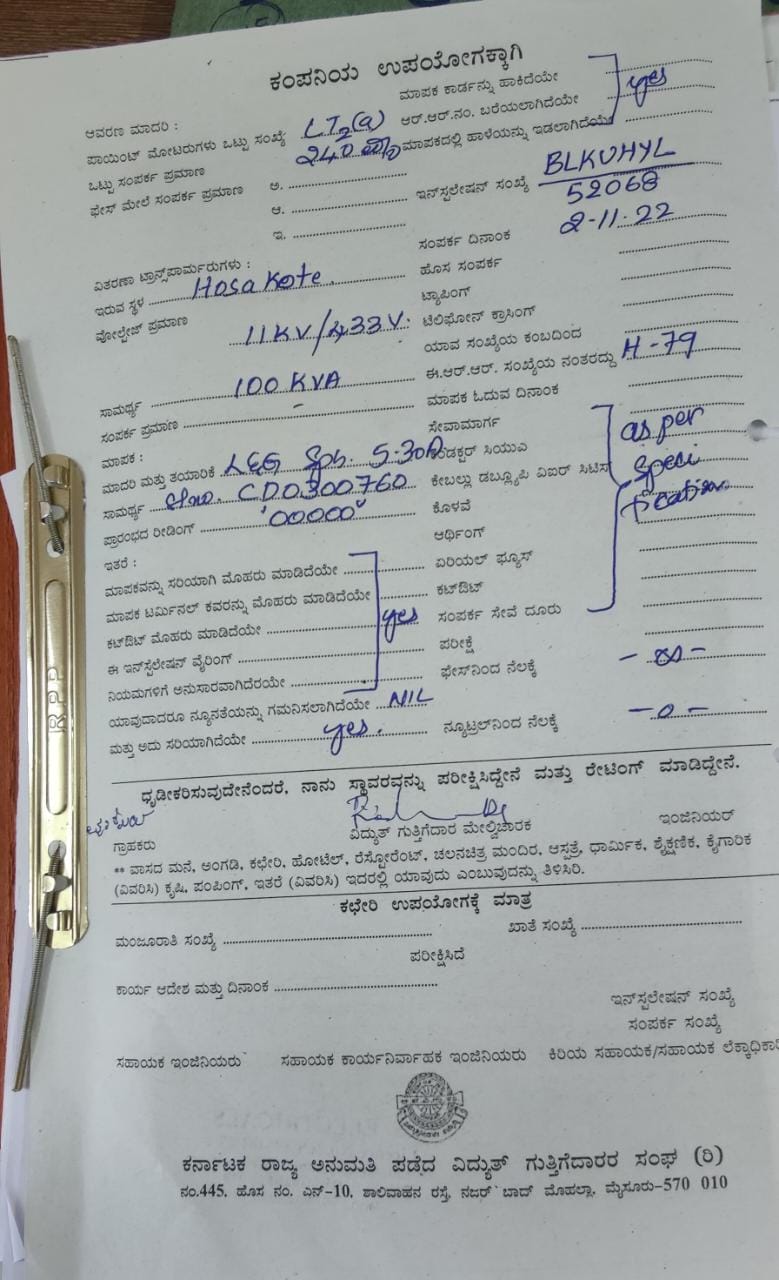 ಕಂಪನಿಯ ಉಪಯೋಗಕ್ಕಾಗಿ
ಮಾಪಕ ಕಾರ್ಡನ್ನು ಹಾಕಿದೆಯೇ
ಆವರಣ ಮಾದರಿ : LT2(a) ಆರ್.ಆರ್.ನಂ. ಬರೆಯಲಾಗಿದೆಯೇ yes
ಪಾಯಿಂಟ್ ಮೋಟರುಗಳು ಒಟ್ಟು ಸಂಖ್ಯೆ 240 ಮಾಪಕದಲ್ಲಿ ಹಾಳೆಯನ್ನು ಇಡಲಾಗಿದೆಯೇ
ಒಟ್ಟು ಸಂಪರ್ಕ ಪ್ರಮಾಣ
ಫೇಸ್ ಮೇಲೆ ಸಂಪರ್ಕ ಪ್ರಮಾಣ ಅ. ಇನ್‌ಸ್ಟಲೇಷನ್ ಸಂಖ್ಯೆ BLKUHYL
52068
ಆ.
ಇ. ಸಂಪರ್ಕ ದಿನಾಂಕ 2-11-22
ವಿತರಣಾ ಟ್ರಾನ್ಸ್‌ಪಾರ್ಮರುಗಳು : ಹೊಸ ಸಂಪರ್ಕ
ಇರುವ ಸ್ಥಳ Hosakote. ಟ್ಯಾಪಿಂಗ್
ವೋಲ್ಟೇಜ್ ಪ್ರಮಾಣ 11KV/433V. ಟೆಲಿಫೋನ್ ಕ್ರಾಸಿಂಗ್
ಯಾವ ಸಂಖ್ಯೆಯ ಕಂಬದಿಂದ
ಸಾಮರ್ಥ್ಯ 100 KVA ಈ.ಆರ್.ಆರ್. ಸಂಖ್ಯೆಯ ನಂತರದ್ದು H-79
ಸಂಪರ್ಕ ಪ್ರಮಾಣ - ಮಾಪಕ ಓದುವ ದಿನಾಂಕ
ಮಾಪಕ : ಸೇವಾಮಾರ್ಗ
ಮಾದರಿ ಮತ್ತು ತಯಾರಿಕೆ L&G 5-30A ಕಂಡಕ್ಟರ್ ಸಿಯುಎ as per
ಸಾಮರ್ಥ್ಯ Slno. CD0300760 ಕೇಬಲ್ಲು ಡಬ್ಲ್ಯೂಪಿ ವಿಐರ್ ಸಿಟಿಸ speci
ಪ್ರಾರಂಭದ ರೀಡಿಂಗ್ '00000' ಕೊಳವೆ fication
ಇತರೆ : ಆರ್ಥಿಂಗ್
ಮಾಪಕವನ್ನು ಸರಿಯಾಗಿ ಮೊಹರು ಮಾಡಿದೆಯೇ ಏರಿಯಲ್ ಫ್ಯೂಸ್
ಮಾಪಕ ಟರ್ಮಿನಲ್ ಕವರನ್ನು ಮೊಹರು ಮಾಡಿದೆಯೇ ಕಟ್‌ಔಟ್
ಕಟ್‌ಔಟ್ ಮೊಹರು ಮಾಡಿದೆಯೇ yes ಸಂಪರ್ಕ ಸೇವೆ ದೂರು
ಈ ಇನ್‌ಸ್ಟಲೇಷನ್ ವೈರಿಂಗ್ ಪರೀಕ್ಷೆ
ನಿಯಮಗಳಿಗೆ ಅನುಸಾರವಾಗಿದೆರಯೇ ಫೇಸ್‌ನಿಂದ ನೆಲಕ್ಕೆ - ∞ -
ಯಾವುದಾದರೂ ನ್ಯೂನತೆಯನ್ನು ಗಮನಿಸಲಾಗಿದೆಯೇ NIL
ಮತ್ತು ಅದು ಸರಿಯಾಗಿದೆಯೇ yes. ನ್ಯೂಟ್ರಲ್‌ನಿಂದ ನೆಲಕ್ಕೆ - 0 -
ಧೃಡೀಕರಿಸುವುದೇನೆಂದರೆ, ನಾನು ಸ್ಥಾವರವನ್ನು ಪರೀಕ್ಷಿಸಿದ್ದೇನೆ ಮತ್ತು ರೇಟಿಂಗ್ ಮಾಡಿದ್ದೇನೆ.
ಗ್ರಾಹಕರು ವಿದ್ಯುತ್ ಗುತ್ತಿಗೆದಾರ ಮೇಲ್ವಿಚಾರಕ ಇಂಜಿನಿಯರ್
** ವಾಸದ ಮನೆ, ಅಂಗಡಿ, ಕಛೇರಿ, ಹೋಟೆಲ್, ರೆಸ್ಟೋರೆಂಟ್, ಚಲನಚಿತ್ರ ಮಂದಿರ, ಆಸ್ಪತ್ರೆ, ಧಾರ್ಮಿಕ, ಶೈಕ್ಷಣಿಕ, ಕೈಗಾರಿಕ
(ವಿವರಿಸಿ) ಕೃಷಿ, ಪಂಪಿಂಗ್, ಇತರೆ (ವಿವರಿಸಿ) ಇದರಲ್ಲಿ ಯಾವುದು ಎಂಬುವುದನ್ನು ತಿಳಿಸಿರಿ.
ಕಛೇರಿ ಉಪಯೋಗಕ್ಕೆ ಮಾತ್ರ
ಮಂಜೂರಾತಿ ಸಂಖ್ಯೆ ಖಾತೆ ಸಂಖ್ಯೆ
ಪರೀಕ್ಷಿಸಿದೆ
ಕಾರ್ಯ ಆದೇಶ ಮತ್ತು ದಿನಾಂಕ
ಇನ್‌ಸ್ಪಲೇಷನ್ ಸಂಖ್ಯೆ
ಸಂಪರ್ಕ ಸಂಖ್ಯೆ
ಸಹಾಯಕ ಇಂಜಿನಿಯರು ಸಹಾಯಕ ಕಾರ್ಯನಿರ್ವಾಹಕ ಇಂಜಿನಿಯರು ಕಿರಿಯ ಸಹಾಯಕ/ಸಹಾಯಕ ಲೆಕ್ಕಾಧಿಕಾರಿ
ಕರ್ನಾಟಕ ರಾಜ್ಯ ಅನುಮತಿ ಪಡೆದ ವಿದ್ಯುತ್ ಗುತ್ತಿಗೆದಾರರ ಸಂಘ (ರಿ)
ನಂ.445, ಹೊಸ ನಂ. ಎನ್-10, ಶಾಲಿವಾಹನ ರಸ್ತೆ, ನಜರ್ ಬಾದ್ ಮೊಹಲ್ಲಾ, ಮೈಸೂರು-570 010
RPP